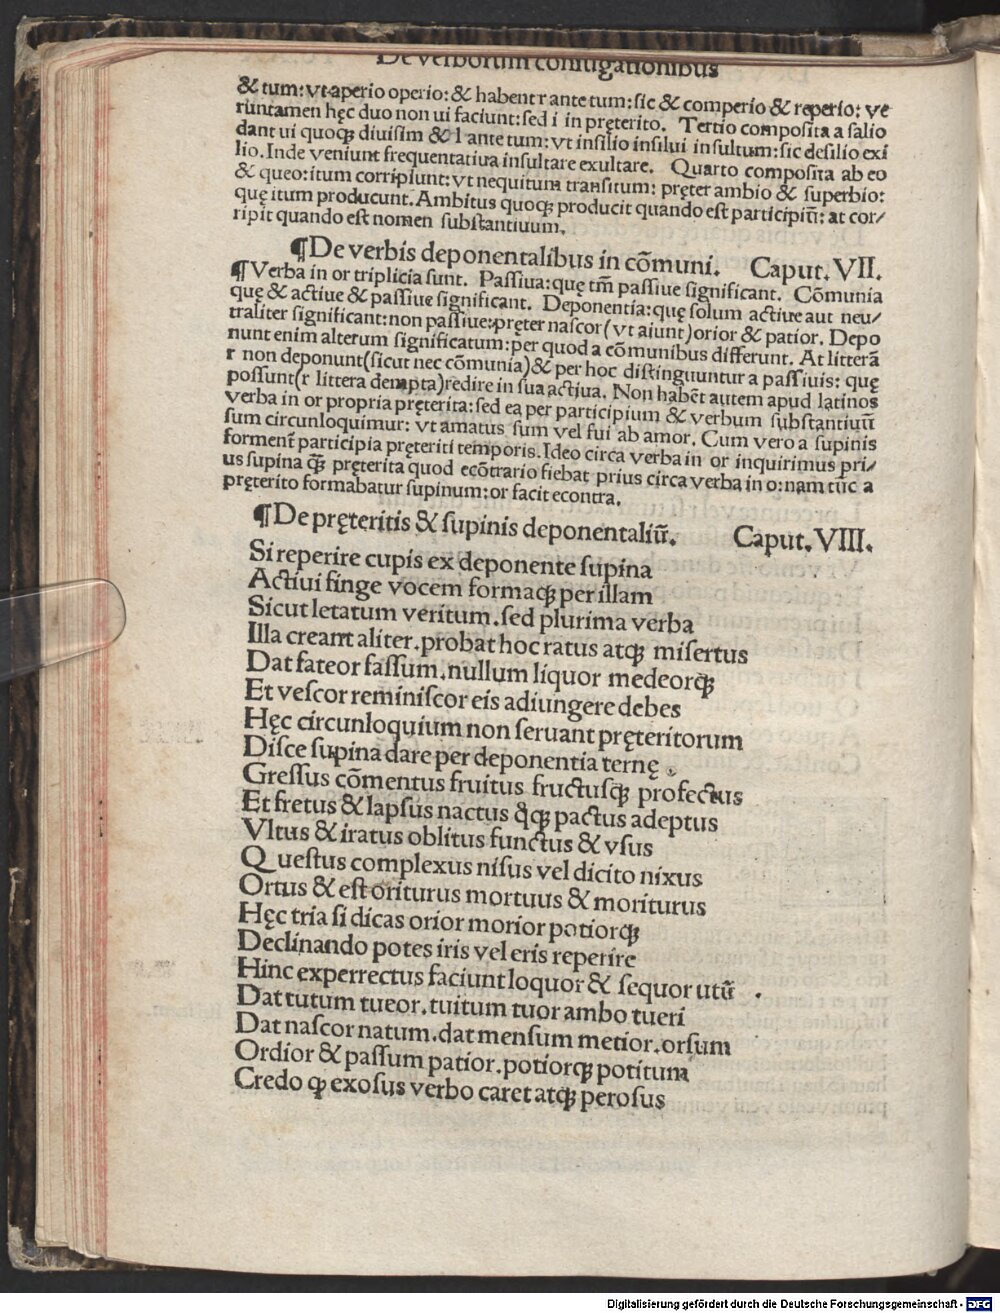 De verborum coniugationibus
& tum: vt aperio operio: & habent r ante tum: sic & comperio & reperio: ve
runtamen hęc duo non ui faciunt: sed i in pręterito. Tertio composita a salio
dant ui quoqȝ diuisim & l ante tum: vt insilio insilui insultum: sic desilio exi
lio. Inde veniunt frequentatiua insultare exultare. Quarto composita ab eo
& queo: itum corripiunt: vt nequitum transitum: pręter ambio & superbio:
quę itum producunt. Ambitus quoqȝ producit quando est participiū: at cor/
ripit quando est nomen substantiuum.
¶ De verbis deponentalibus in cōmuni. Caput. VII.
¶ Verba in or triplicia sunt. Passiua: quę tm̄ passiue significant. Cōmunia
quę & actiue & passiue significant. Deponentia: quę solum actiue aut neu/
traliter significant: non passiue: pręter nascor (vt aiunt) orior & patior. Depo
nunt enim alterum significatum: per quod a cōmunibus differunt. At litterā
r non deponunt (sicut nec cōmunia) & per hoc distinguuntur a passiuis: quę
possunt (r littera dempta) redire in sua actiua. Non habēt autem apud latinos
verba in or propria pręterita: sed ea per participium & verbum substantiuū
sum circunloquimur: vt amatus sum vel fui ab amor. Cum vero a supinis
formenť participia pręteriti temporis. Ideo circa verba in or inquirimus pri/
us supina qȝ̄ pręterita quod ecōtrario fiebat prius circa verba in o: nam tūc a
pręterito formabatur supinum: or facit econtra.
¶ De pręteritis & supinis deponentaliū. Caput. VIII.
Si reperire cupis ex deponente supina
Actiui finge vocem formaqȝ per illam
Sicut letatum veritum. sed plurima verba
Illa creant aliter. probat hoc ratus atqȝ misertus
Dat fateor fassum. nullum liquor medeorqȝ
Et vescor reminiscor eis adiungere debes
Hęc circunloquium non seruant pręteritorum
Disce supina dare per deponentia ternę.
Gressus cōmentus fruitus fructusqȝ profectus
Et fretus & lapsus nactus q̄qȝ pactus adeptus
Vltus & iratus oblitus functus & vsus
Questus complexus nisus vel dicito nixus
Ortus & est oriturus mortuus & moriturus
Hęc tria si dicas orior morior potiorqȝ
Declinando potes iris vel eris reperire
Hinc experrectus faciunt loquor & sequor utū
Dat tutum tueor. tuitum tuor ambo tueri
Dat nascor natum. dat mensum metior. orsum
Ordior & passum patior. potiorqȝ potitum
Credo ꝙ exosus verbo caret atqȝ perosus
Digitalisierung gefördert durch die Deutsche Forschungsgemeinschaft - DFG